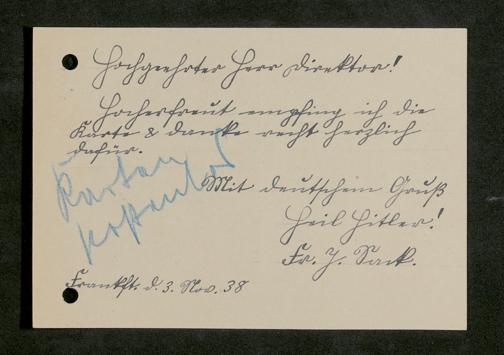 Hochgeehrter Herr Direktor!
Hocherfreut empfing ich die
Karte & danke recht herzlich
dafür.
Mit deutschem Gruß
Heil Hitler!
Fr. J. Sack.
Frankft. d. 3. Nov. 38
Karten